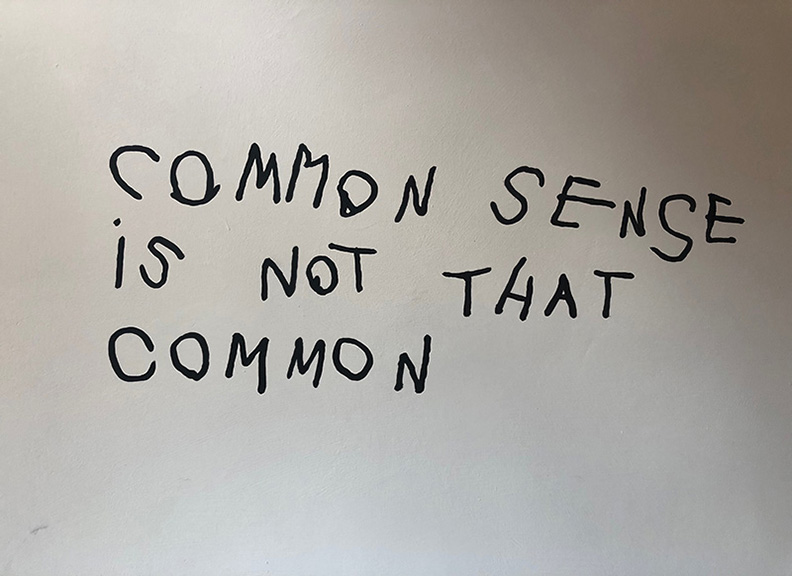 COMMON SENSE
iS NOT THAT
COMMON